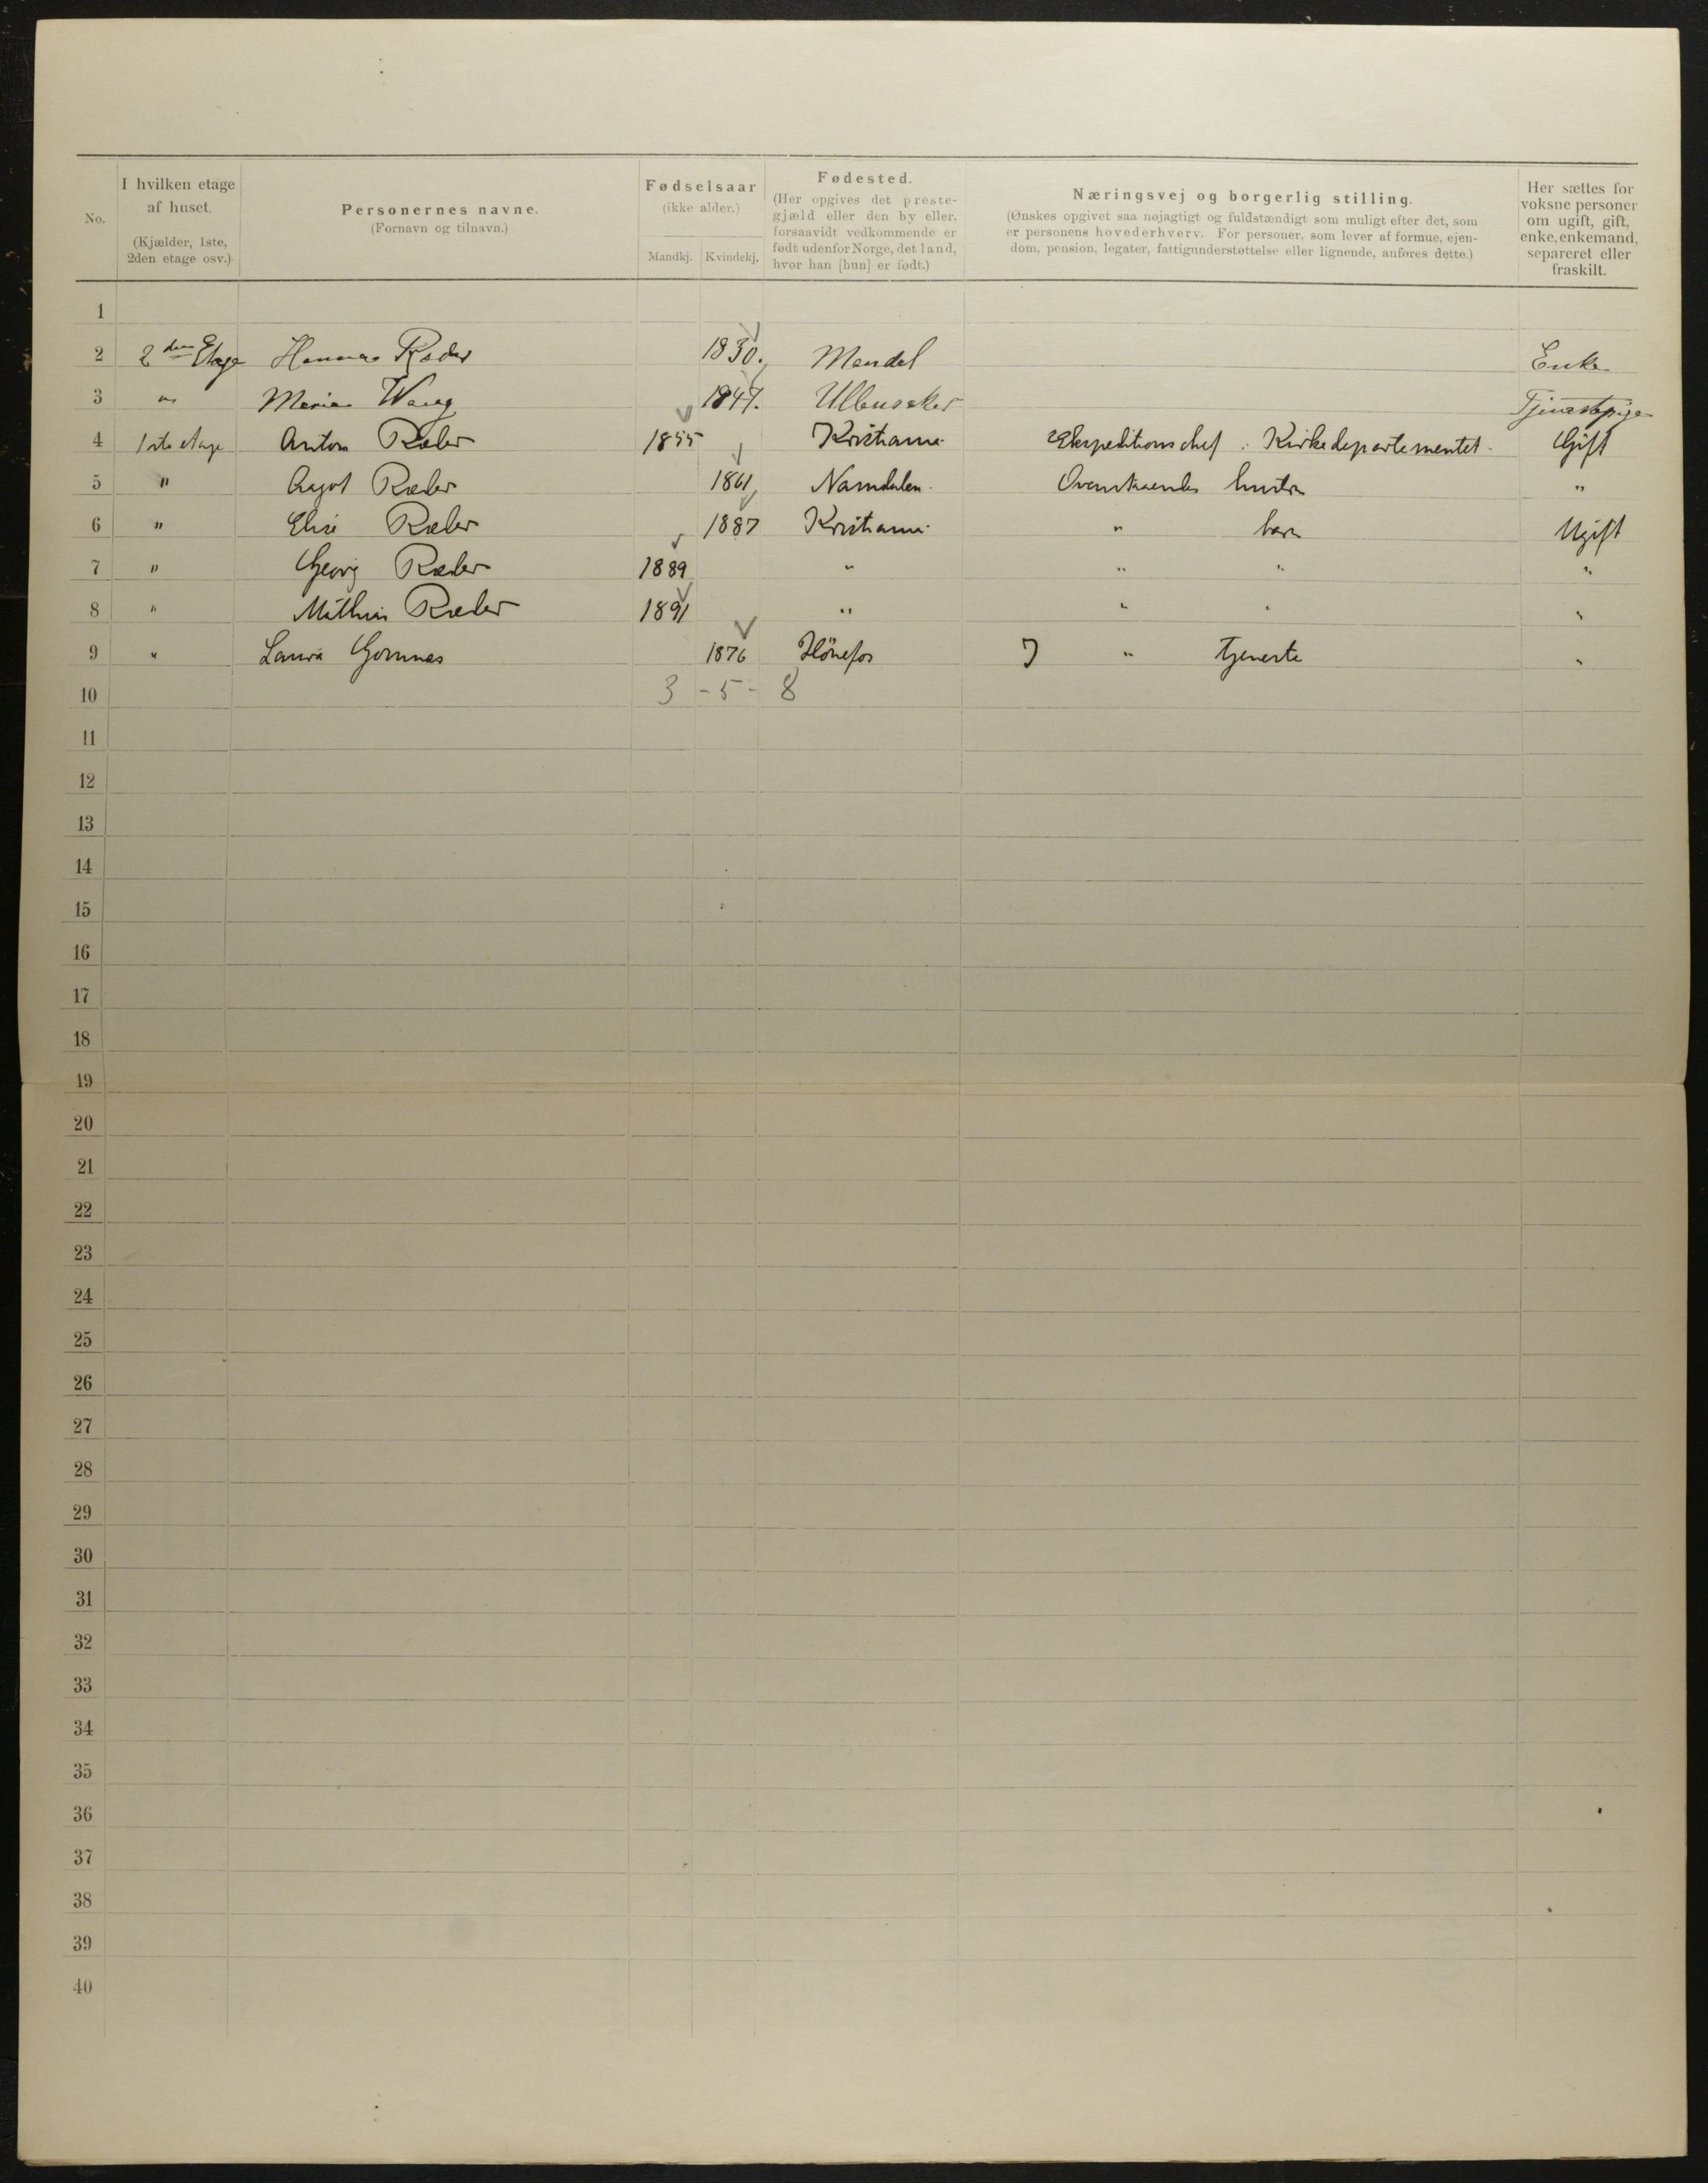 No.
I hvilken etage af huset.
(Kjælder, 1ste, 2den etage osv.)
Personernes navne.
(Fornavn og tilnavn.)
Fødselsaar
(ikke alder.)
Mandkj. Kvindekj.
Fødested.
(Her opgives det preste-
gjæld eller den by eller,
forsaavidt vedkommende er
født udenfor Norge, det land,
hvor han [hun] er født.)
Næringsvej og borgerlig stilling.
(Ønskes opgivet saa nøjagtigt og fuldstændigt som muligt efter det, som
er personens hovederhverv. For personer, som lever af formue, ejen-
dom, pension, legater, fattigunderstøttelse eller lignende, anføres dette.)
Her sættes for
voksne personer
om ugift, gift,
enke, enkemand,
separeret eller
fraskilt.
1
2 2den Etage Hanna Ræder 1830. Mandal Enke
3 " Marie 1847. Ullensaker Tjenestepige
4 1ste etage Anton Ræder 1855 Kristiania Ekspeditionschef i Kirkedepartementet Gift
5 " Aagot Ræder 1861 Namdalen Ovenstaaendes hustru "
6 " Elise Ræder 1887 Kristiania " barn Ugift
7 " Georg Ræder 1889 " " " "
8 " Mathias Ræder 1891 " " " "
9 " Laura 1876 Hönefos I " tjeneste "
10 3 - 5 - 8
11
12
13
14
15
16
17
18
19
20
21
22
23
24
25
26
27
28
29
30
31
32
33
34
35
36
37
38
39
40